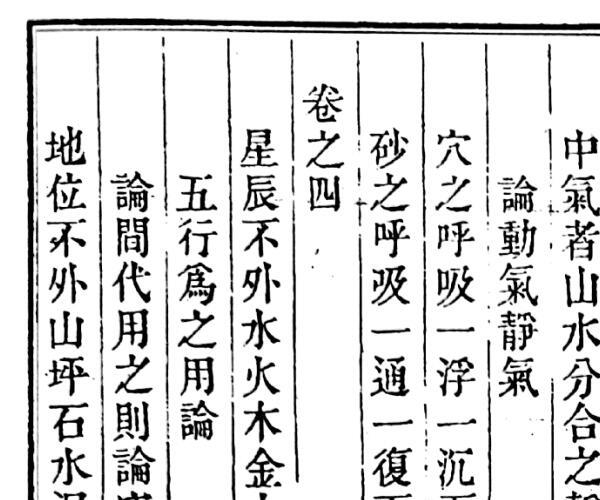 中氣者山水分合之
論動氣靜氣
穴之呼吸一浮一沉
砂之呼吸一通一復
卷之四
星辰不外水火木金
五行爲之用論
論間代用之則論
地位不外山坪石水